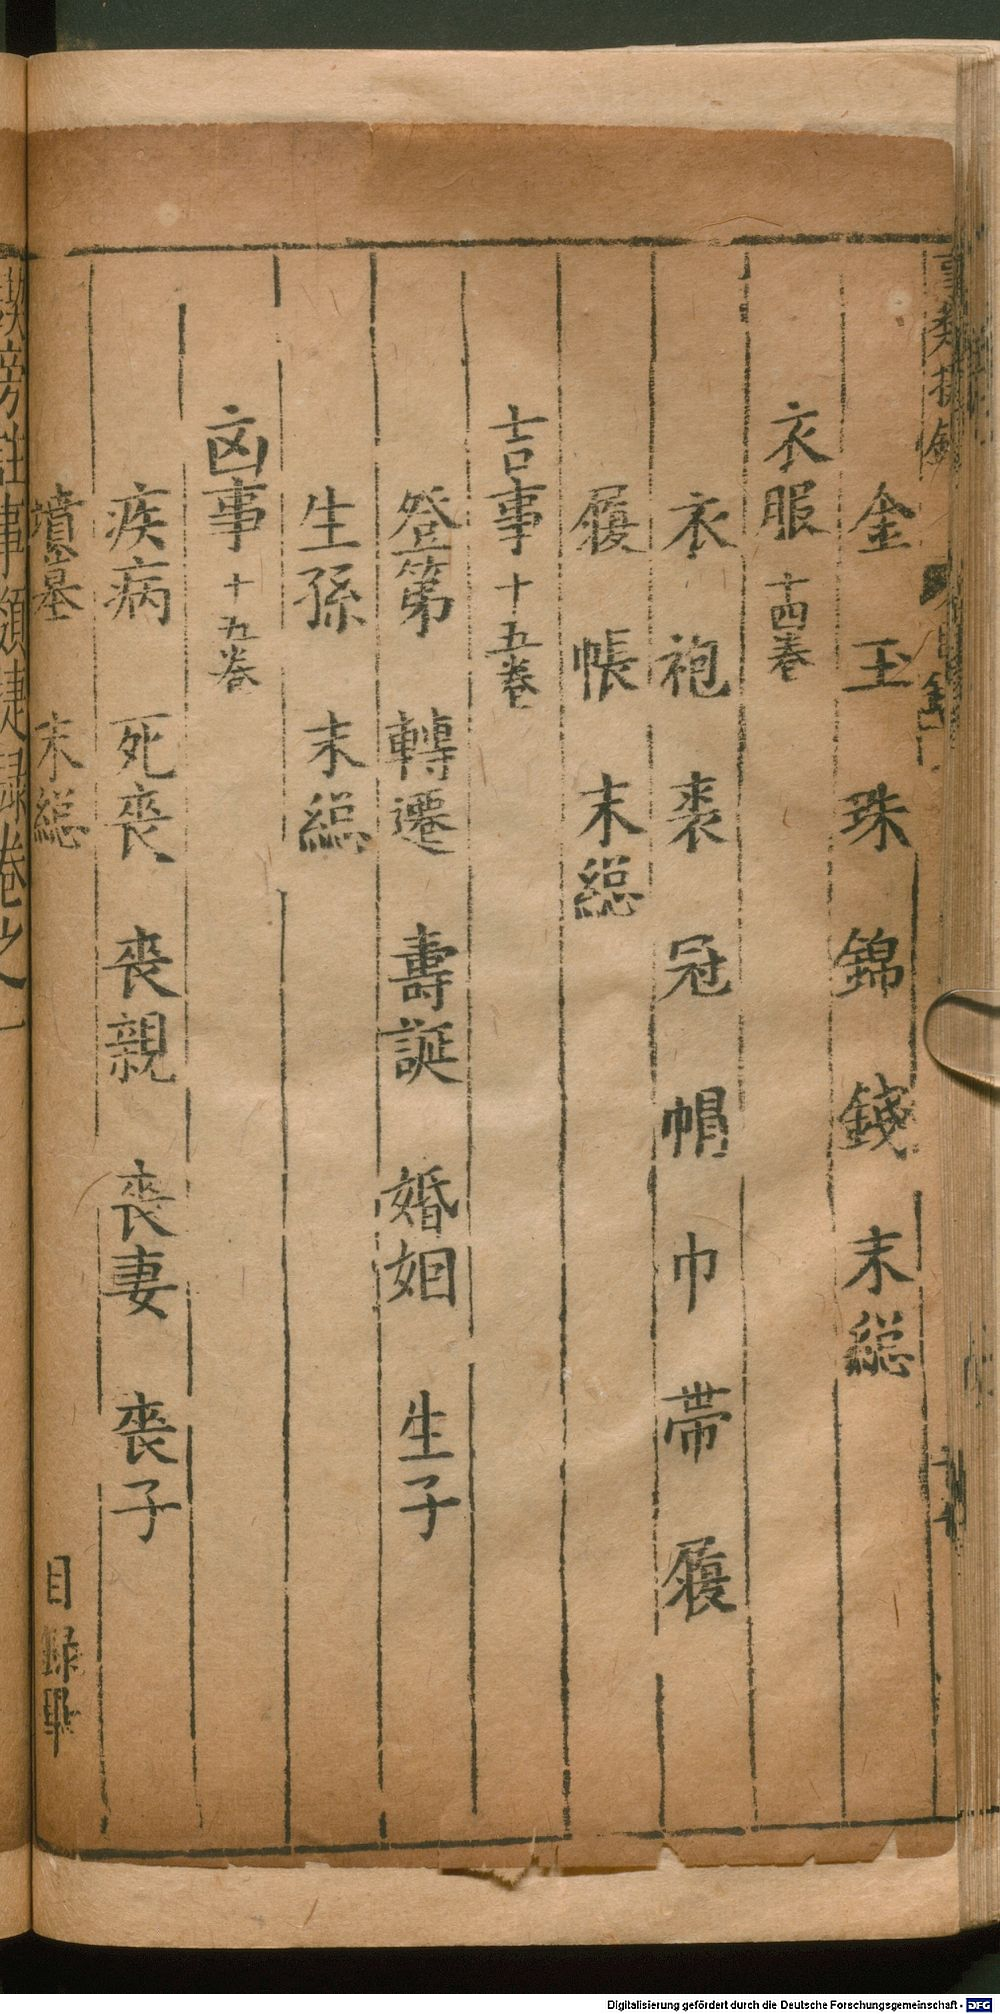 金 玉 珠 錦 錢 末緫
衣服 十四巻
衣 袍 裘 冠 帽 巾 帶 履
履 帳 末緫
吉事 十五巻
登第 轉遷 壽誕 婚姻 生子
生孫 末緫
凶事 十九巻
疾病 死喪 喪親 喪妻 喪子
墳墓 末緫 目録畢
旁註事類捷録卷之一
Digitalisierung gefördert durch die Deutsche Forschungsgemeinschaft - DFG